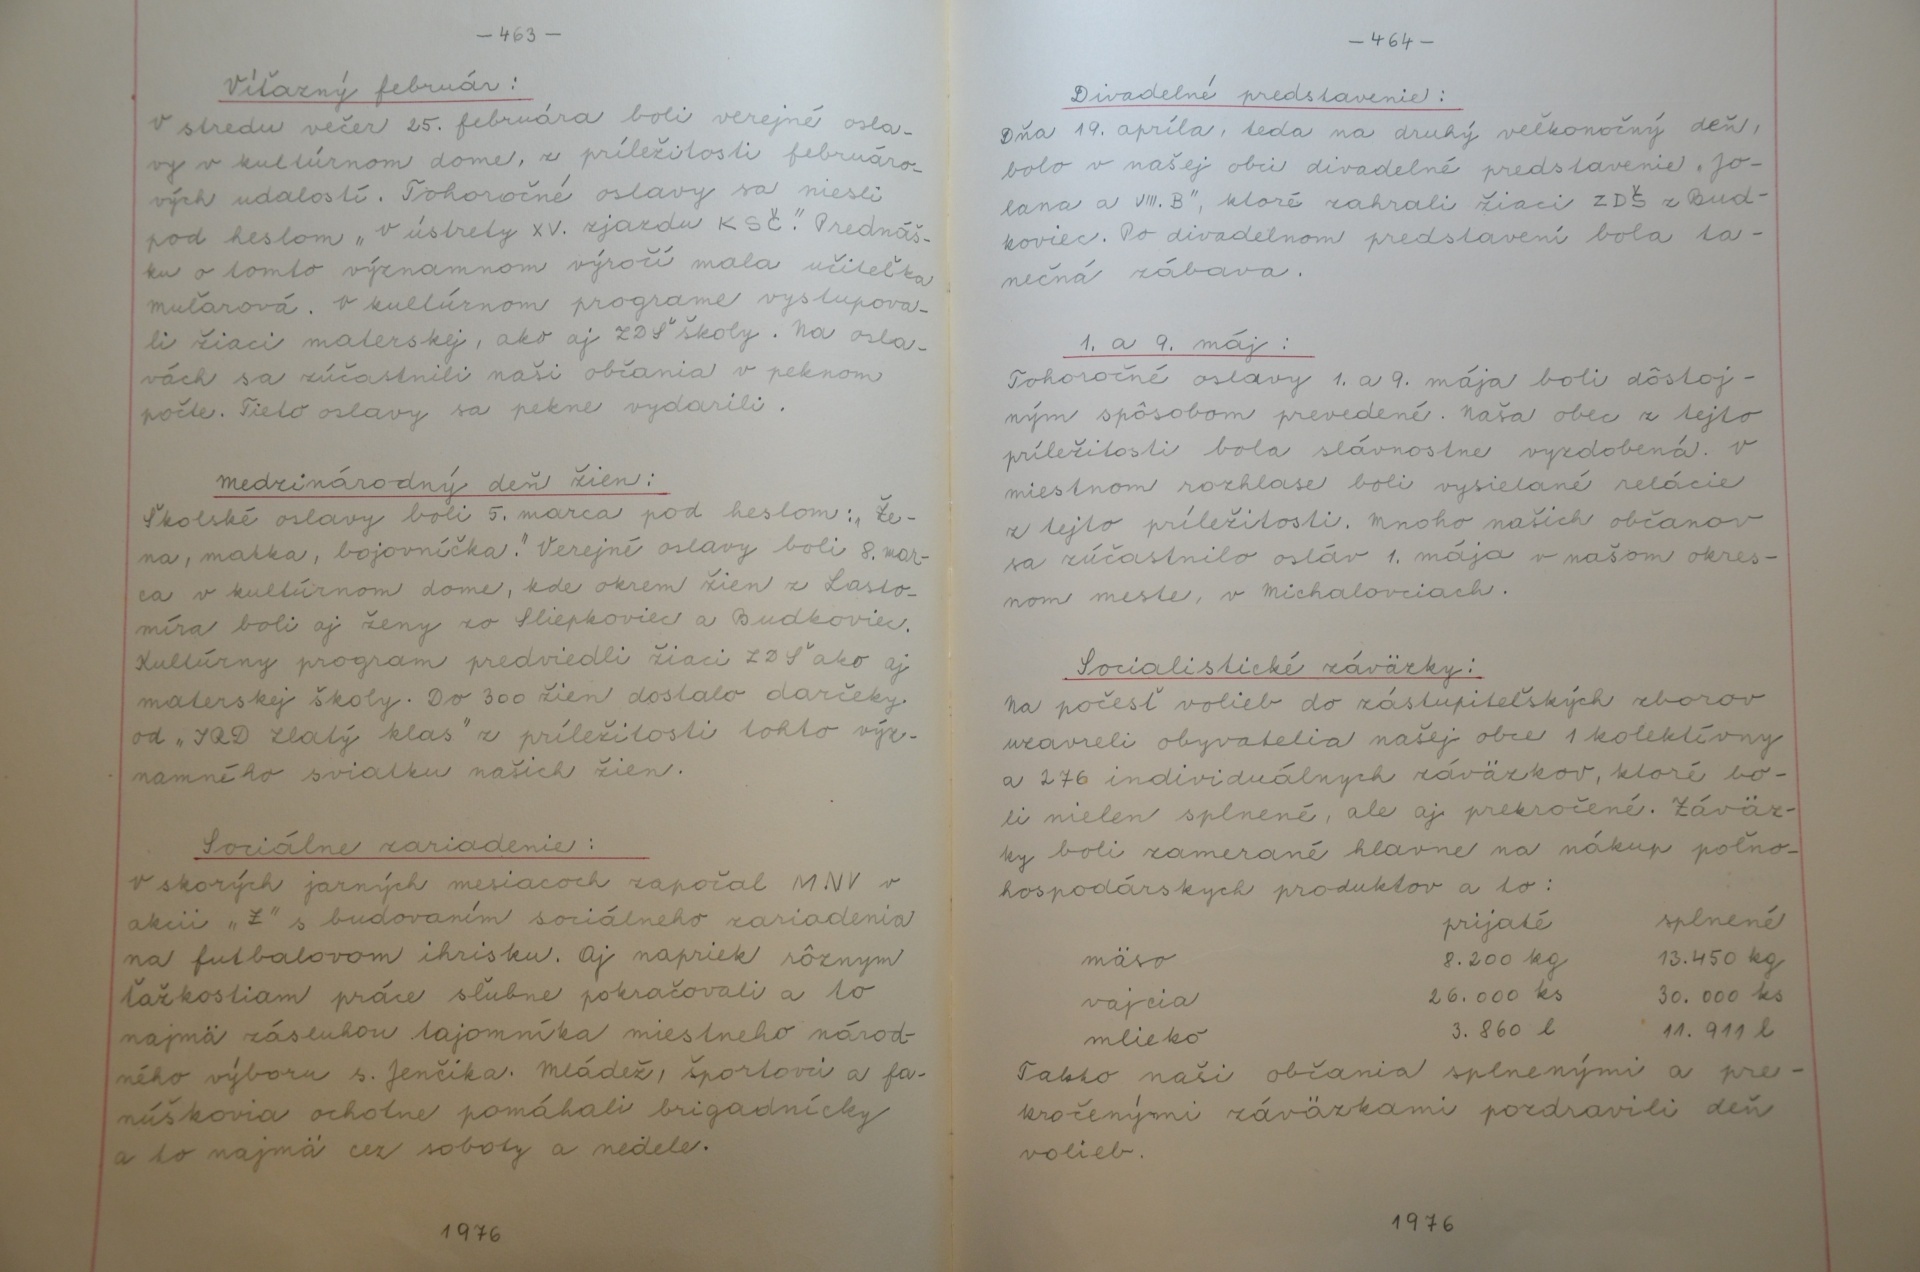 — 463 —
Víťazný február:
V stredu večer 25. februára boli verejné osla-
vy v kultúrnom dome, z príležitosti februáro-
vých udalostí. Tohoročné oslavy sa niesli
pod heslom „V ústrety XV. zjazdu KSČ." Prednáš-
ku o tomto významnom výročí mala učiteľka
Mučarová. V kultúrnom programe vystupova-
li žiaci materskej, ako aj ZDŠ školy. Na osla-
vách sa zúčastnili naši občania v peknom
počte. Tieto oslavy sa pekne vydarili.
Medzinárodný deň žien:
Školské oslavy boli 5. marca pod heslom: „Že-
na, matka, bojovníčka." Verejné oslavy boli 8. mar-
ca v kultúrnom dome, kde okrem žien z Lasto-
míra boli aj ženy zo Sliepkoviec a Budkoviec.
Kultúrny program predviedli žiaci ZDŠ ako aj
materskej školy. Do 300 žien dostalo darčeky
od „JRD Zlatý klas" z príležitosti tohto výz-
namného sviatku našich žien.
Sociálne zariadenie:
V skorých jarných mesiacoch započal MNV v
akcii „Z" s budovaním sociálneho zariadenia
na futbalovom ihrisku. Aj napriek rôznym
ťažkostiam práce sľubne pokračovali a to
najmä zásluhou tajomníka miestneho národ-
ného výboru s. Jenčíka. Mládež, športovci a fa-
núškovia ochotne pomáhali brigadnícky
a to najmä cez soboty a nedele.
1976
— 464 —
Divadelné predstavenie:
Dňa 19. apríla, teda na druhý veľkonočný deň,
bolo v našej obci divadelné predstavenie „Jo-
lana a VIII. B", ktoré zahrali žiaci ZDŠ z Bud-
koviec. Po divadelnom predstavení bola ta-
nečná zábava.
1. a 9. máj:
Tohoročné oslavy 1. a 9. mája boli dôstoj-
ným spôsobom prevedené. Naša obec z tejto
príležitosti bola slávnostne vyzdobená. V
miestnom rozhlase boli vysielané relácie
z tejto príležitosti. Mnoho našich občanov
sa zúčastnilo osláv 1. mája v našom okres-
nom meste, v Michalovciach.
Socialistické záväzky:
Na počesť volieb do zástupiteľských zborov
uzavreli obyvatelia našej obce 1 kolektívny
a 276 individuálnych záväzkov, ktoré bo-
li nielen splnené, ale aj prekročené. Záväz-
ky boli zamerané hlavne na nákup poľno-
hospodárskych produktov a to:
prijaté splnené
mäso 8.200 kg 13.450 kg
vajcia 26.000 ks 30.000 ks
mlieko 3.860 l 11.911 l
Takto naši občania splnenými a pre-
kročenými záväzkami pozdravili deň
volieb.
1976